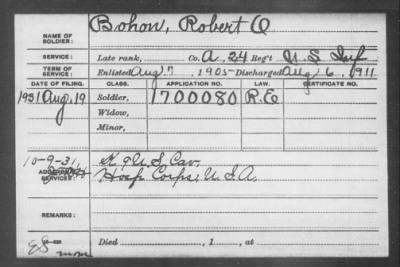 NAME OF SOLDIER: Bohon, Robert O
SERVICE: Late rank, Co. A, 24 Reg't U.S. Inf
TERM OF SERVICE: Enlisted Aug 7, 1905 Discharged Aug 6, 1911
DATE OF FILING. CLASS. APPLICATION NO. LAW. CERTIFICATE NO.
1931 Aug, 19 Soldier, 1700080 R.E
Widow,
Minor,
10-9-31, K 9 U.S. Cav.
ADDITIONAL SERVICES: Hosp Corps, U.S.A.
REMARKS:
Died , 1 , at